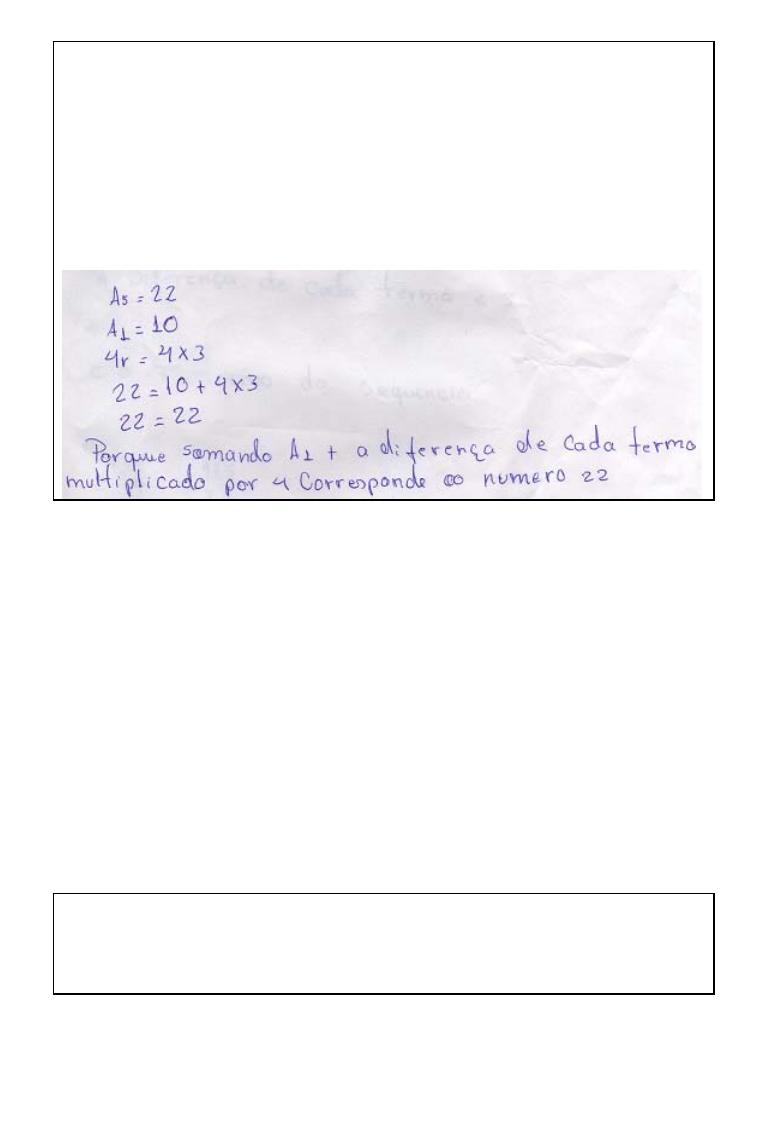 A5 = 22
A1 = 10
4r = 4x3
22 = 10 + 4x3
22 = 22
Porque somando A1 + a diferença de Cada termo
multiplicado por 4 Corresponde ao numero 22